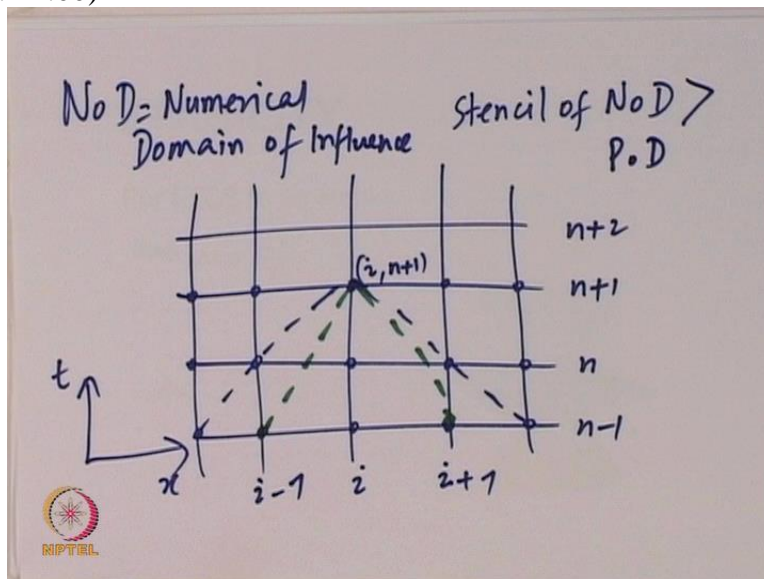 NoD = Numerical
Domain of Influence
Stencil of NoD >
P.D
n+2
(i, n+1)
n+1
t
n
n-1
x
i-1
i
i+1
NPTEL